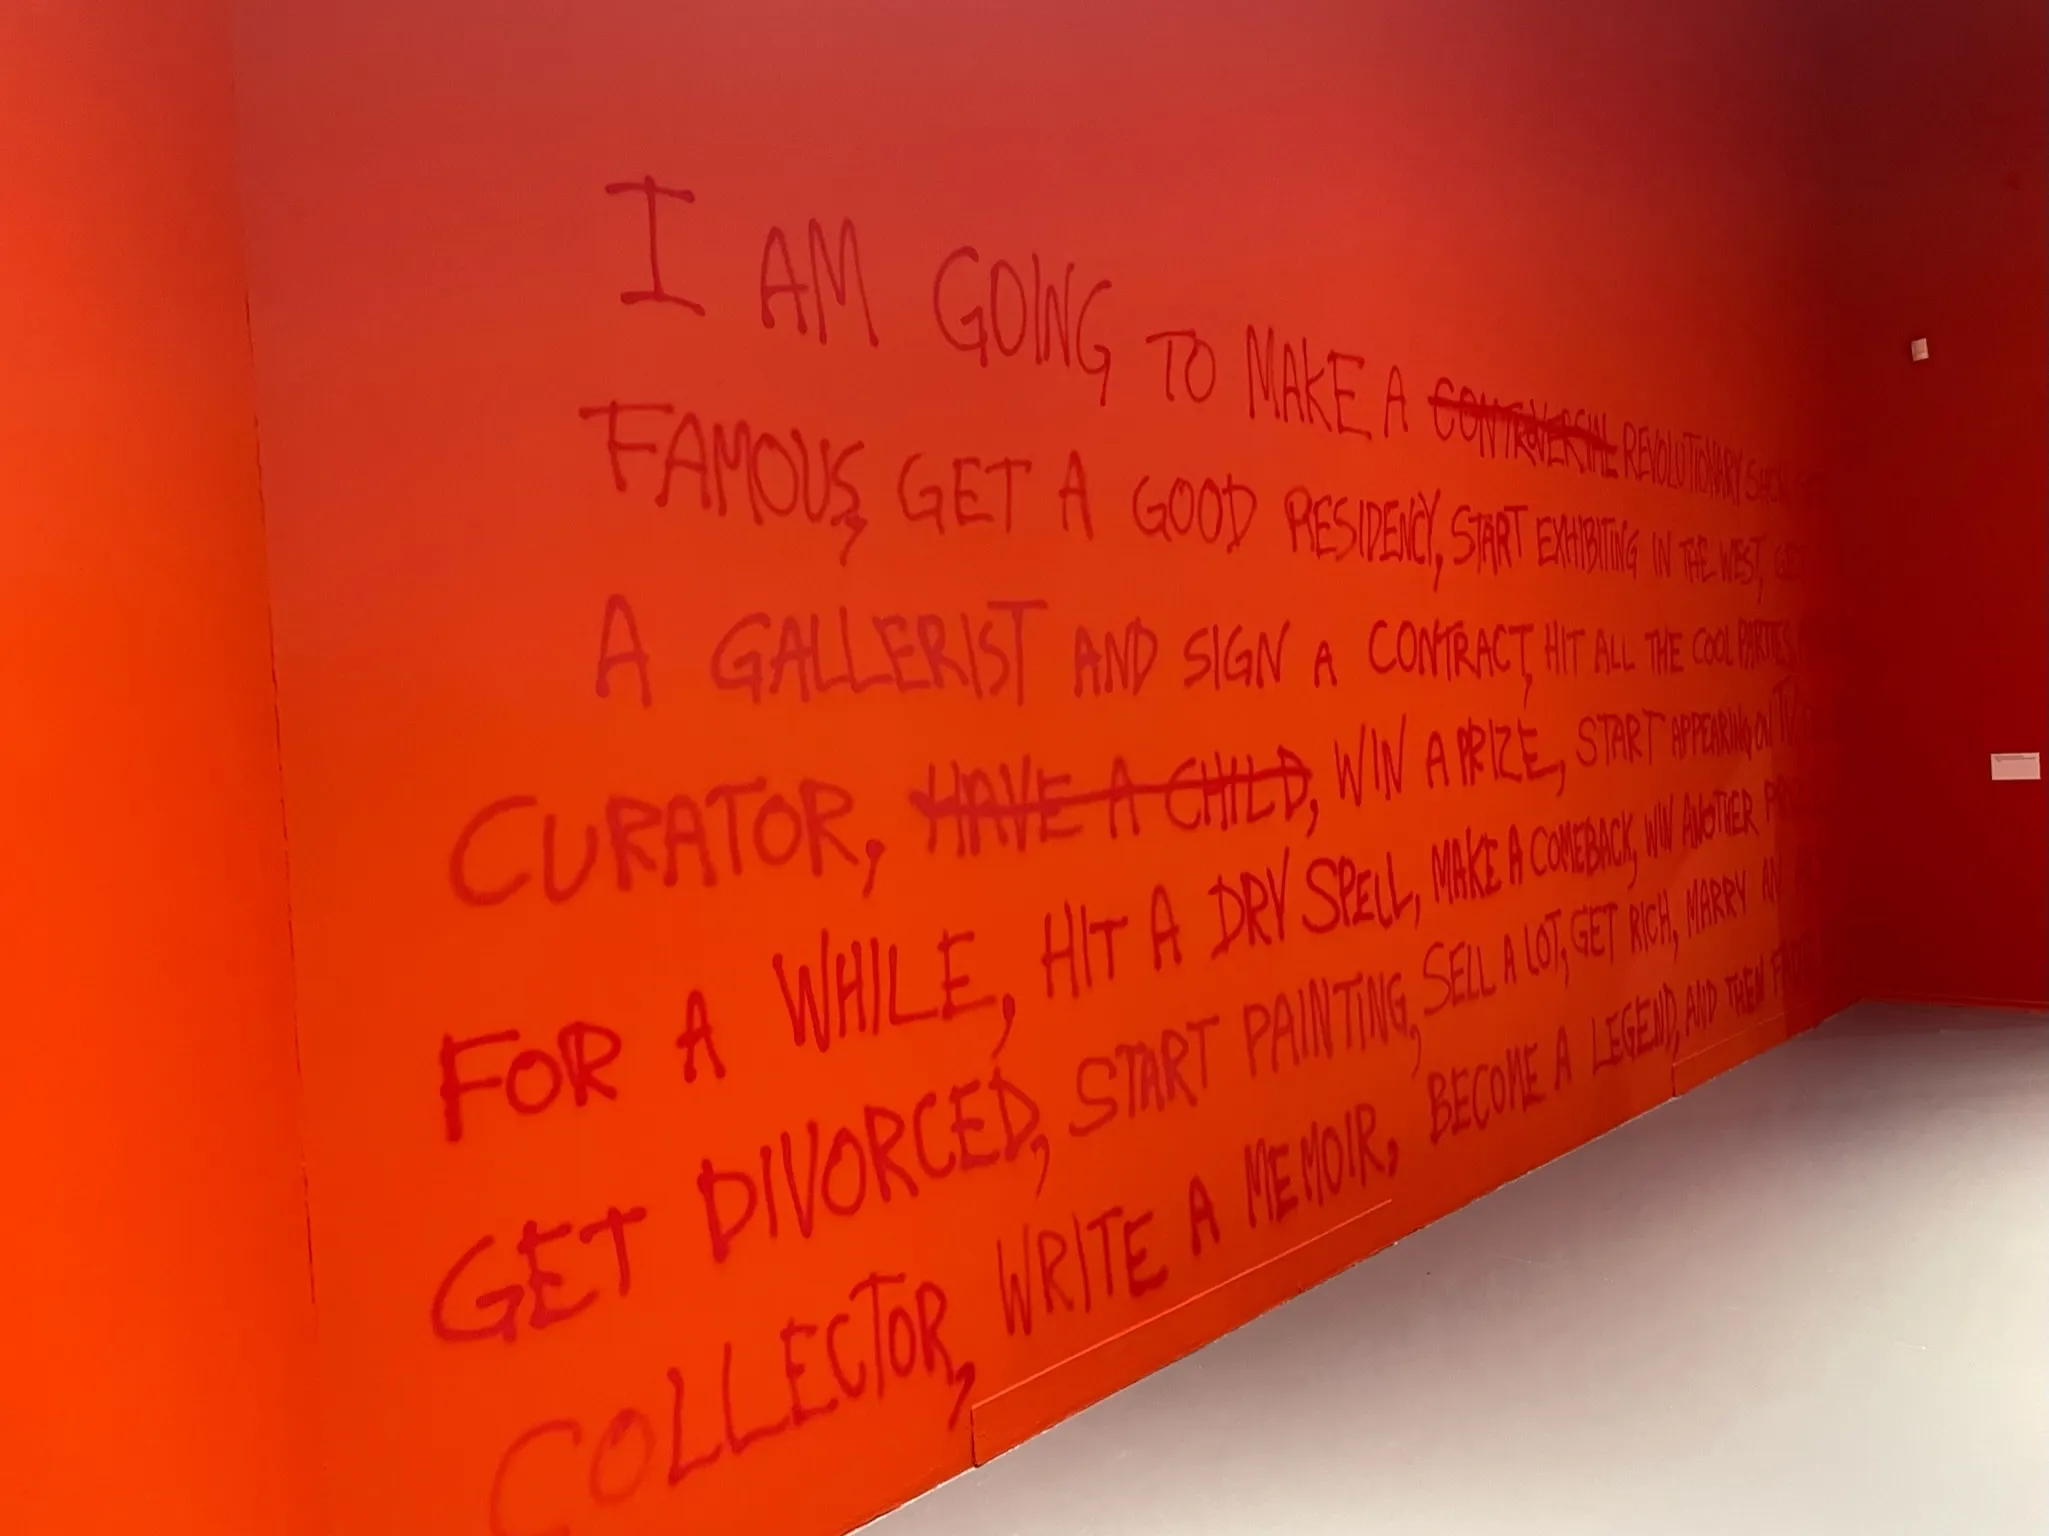 I AM GOING TO MAKE A CONTROVERSIAL REVOLUTIONARY SHOW,
FAMOUS, GET A GOOD RESIDENCY, START EXHIBITING IN THE WEST, GET
A GALLERIST AND SIGN A CONTRACT, HIT ALL THE COOL PARTIES,
CURATOR, HAVE A CHILD, WIN A PRIZE, START APPEARING ON TV
FOR A WHILE, HIT A DRY SPELL, MAKE A COMEBACK, WIN ANOTHER
GET DIVORCED, START PAINTING, SELL A LOT, GET RICH, MARRY AN
COLLECTOR, WRITE A MEMOIR, BECOME A LEGEND, AND THEN